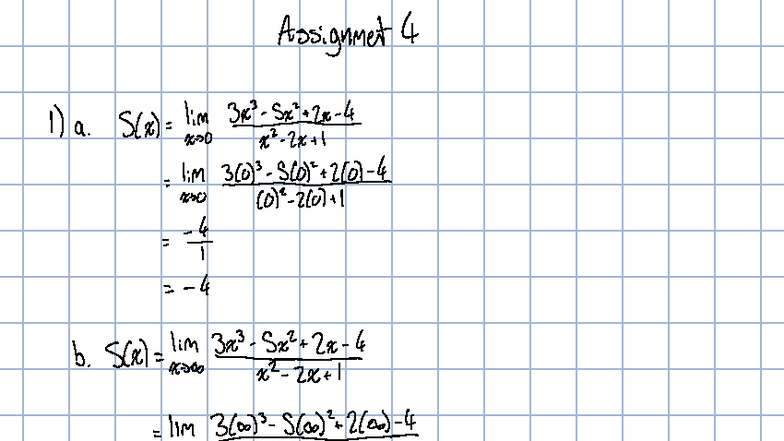 Assignment 4
1) a. S(x) = lim x→0 (3x³ - 5x² + 2x - 4)/(x² - 2x + 1)
= lim x→0 (3(0)³ - 5(0)² + 2(0) - 4)/((0)² - 2(0) + 1)
= -4/1
= -4
b. S(x) = lim x→∞ (3x³ - 5x² + 2x - 4)/(x² - 2x + 1)
= lim 3(∞)³ - 5(∞)² + 2(∞) - 4